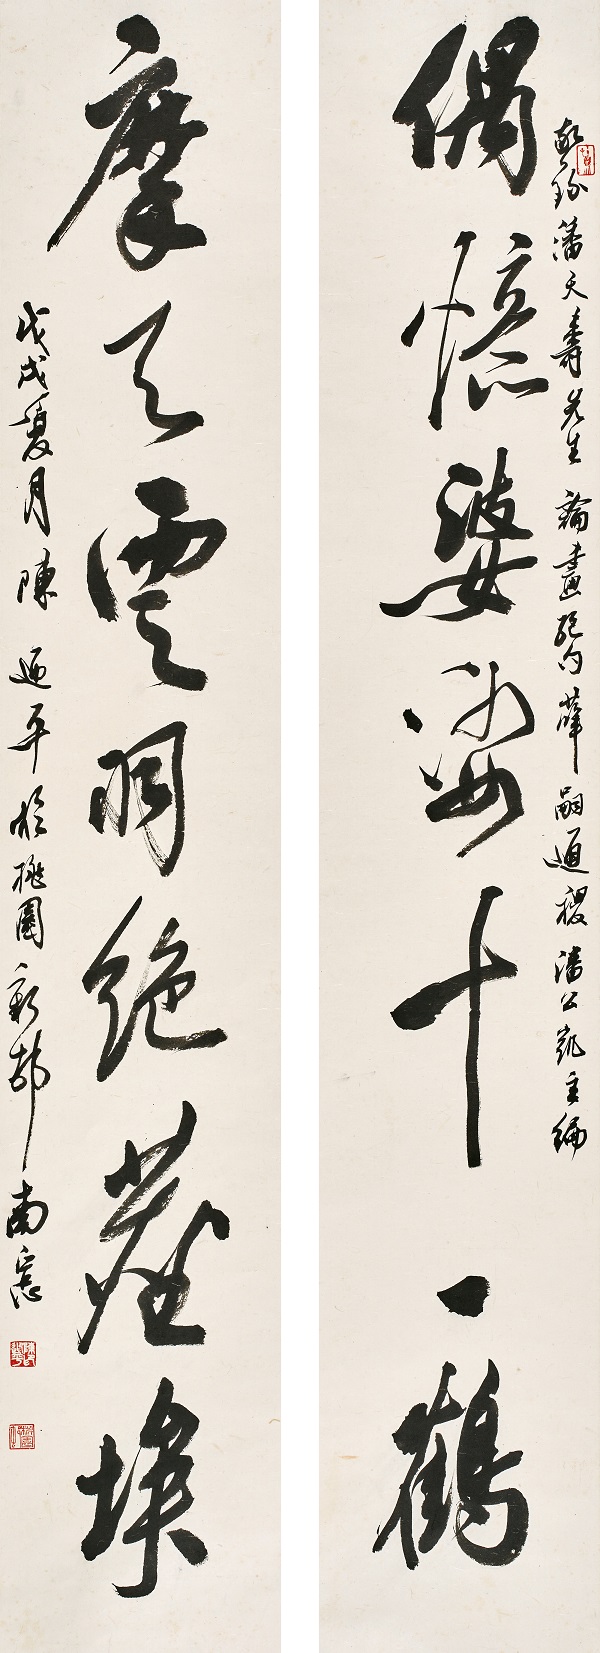 偶憶婆娑十一鶴
敬鈔潘天壽先生論畫絕句薛嗣通稷潘公凱主編
摩天雲羽絕塵埃
戊戌夏月陳迺平於桃園新都南窓